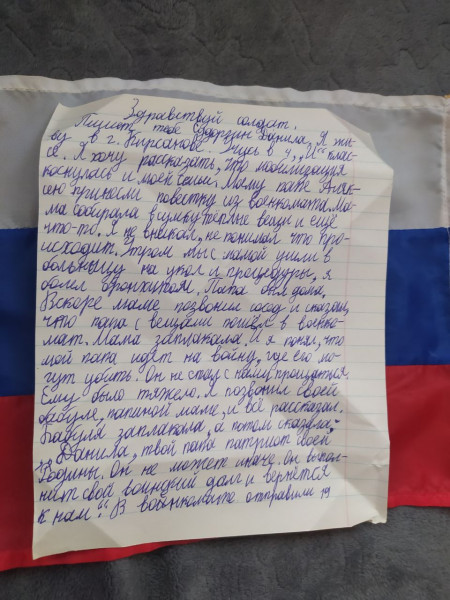 Здравствуй солдат.
Пишет тебе Сдоргзин Данила. Я жи-
ву в г. Кирсанове. Учусь в 4 "И" клас-
се. Я хочу рассказать, что мобилизация
коснулась и моей семьи. Моему папе Алек-
сею принесли повестку из военкомата. Ма-
ма собирала в сумку тёплые вещи и ещё
что-то. Я не вникал, не понимал что про-
исходит. Утром мы с мамой ушли в
больницу на укол и процедуры, я
болел бронхитом. Папа был дома.
Вскоре маме позвонил сосед и сказал,
что папа с вещами пошёл в военко-
мат. Мама заплакала. И я понял, что
мой папа идёт на войну, где его мо-
гут убить. Он не стал с нами прощаться
Ему было тяжело. Я позвонил своей
бабуле, папиной маме, и всё рассказал.
Бабуля заплакала, а потом сказала,
"Данила, твой папа патриот своей
Родины. Он не может иначе. Он выпол-
нит свой воинский долг и вернётся
к нам". В военкомате отправили